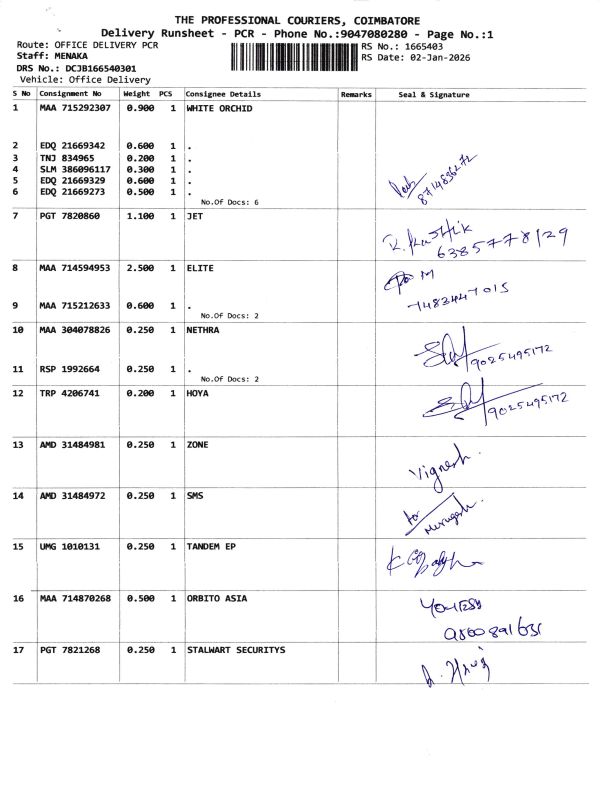 THE PROFESSIONAL COURIERS, COIMBATORE
Delivery Runsheet - PCR - Phone No.:9047080280 - Page No.:1
Route: OFFICE DELIVERY PCR RS No.: 1665403
Staff: MENAKA RS Date: 02-Jan-2026
DRS No.: DCJB166540301
Vehicle: Office Delivery
S No Consignment No Weight PCS Consignee Details Remarks Seal & Signature
1 MAA 715292307 0.900 1 WHITE ORCHID
2 EDQ 21669342 0.600 1 .
3 TNJ 834965 0.200 1 .
4 SLM 386096117 0.300 1 .
5 EDQ 21669329 0.600 1 .
6 EDQ 21669273 0.500 1 .
No.Of Docs: 6
7 PGT 7820860 1.100 1 JET
R. Kaushik
6385778129
8 MAA 714594953 2.500 1 ELITE
9 MAA 715212633 0.600 1 .
7483447015
No.Of Docs: 2
10 MAA 304078826 0.250 1 NETHRA
9025495172
11 RSP 1992664 0.250 1 .
No.Of Docs: 2
12 TRP 4206741 0.200 1 HOYA
9025495172
13 AMD 31484981 0.250 1 ZONE
Vignesh.
14 AMD 31484972 0.250 1 SMS
Murugesh.
15 UMG 1010131 0.250 1 TANDEM EP
16 MAA 714870268 0.500 1 ORBITO ASIA
17 PGT 7821268 0.250 1 STALWART SECURITYS